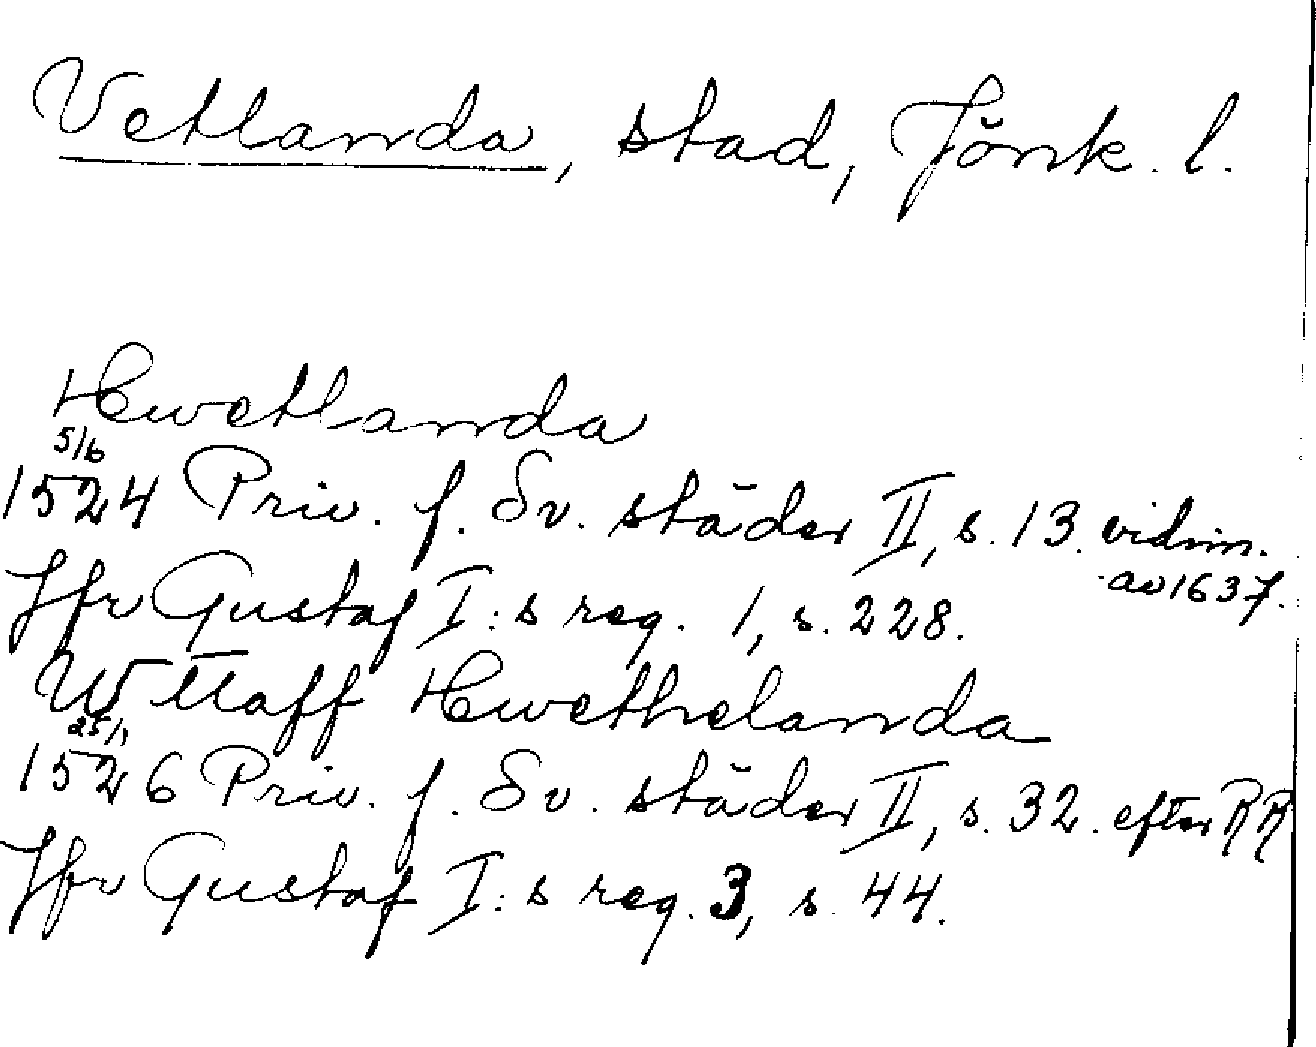 Vetlanda, stad, Jönk. l.
Hwetlanda
5/6
1524 Priv. f. Sv. städer II, s. 13. vidim.
av 1637.
Jfr Gustaf I:s reg. 1, s. 228.
Wttaff Hwethelanda
25/1
1526 Priv. f. Sv. städer II, s. 32. efter RR
Jfr Gustaf I:s reg. 3, s. 44.